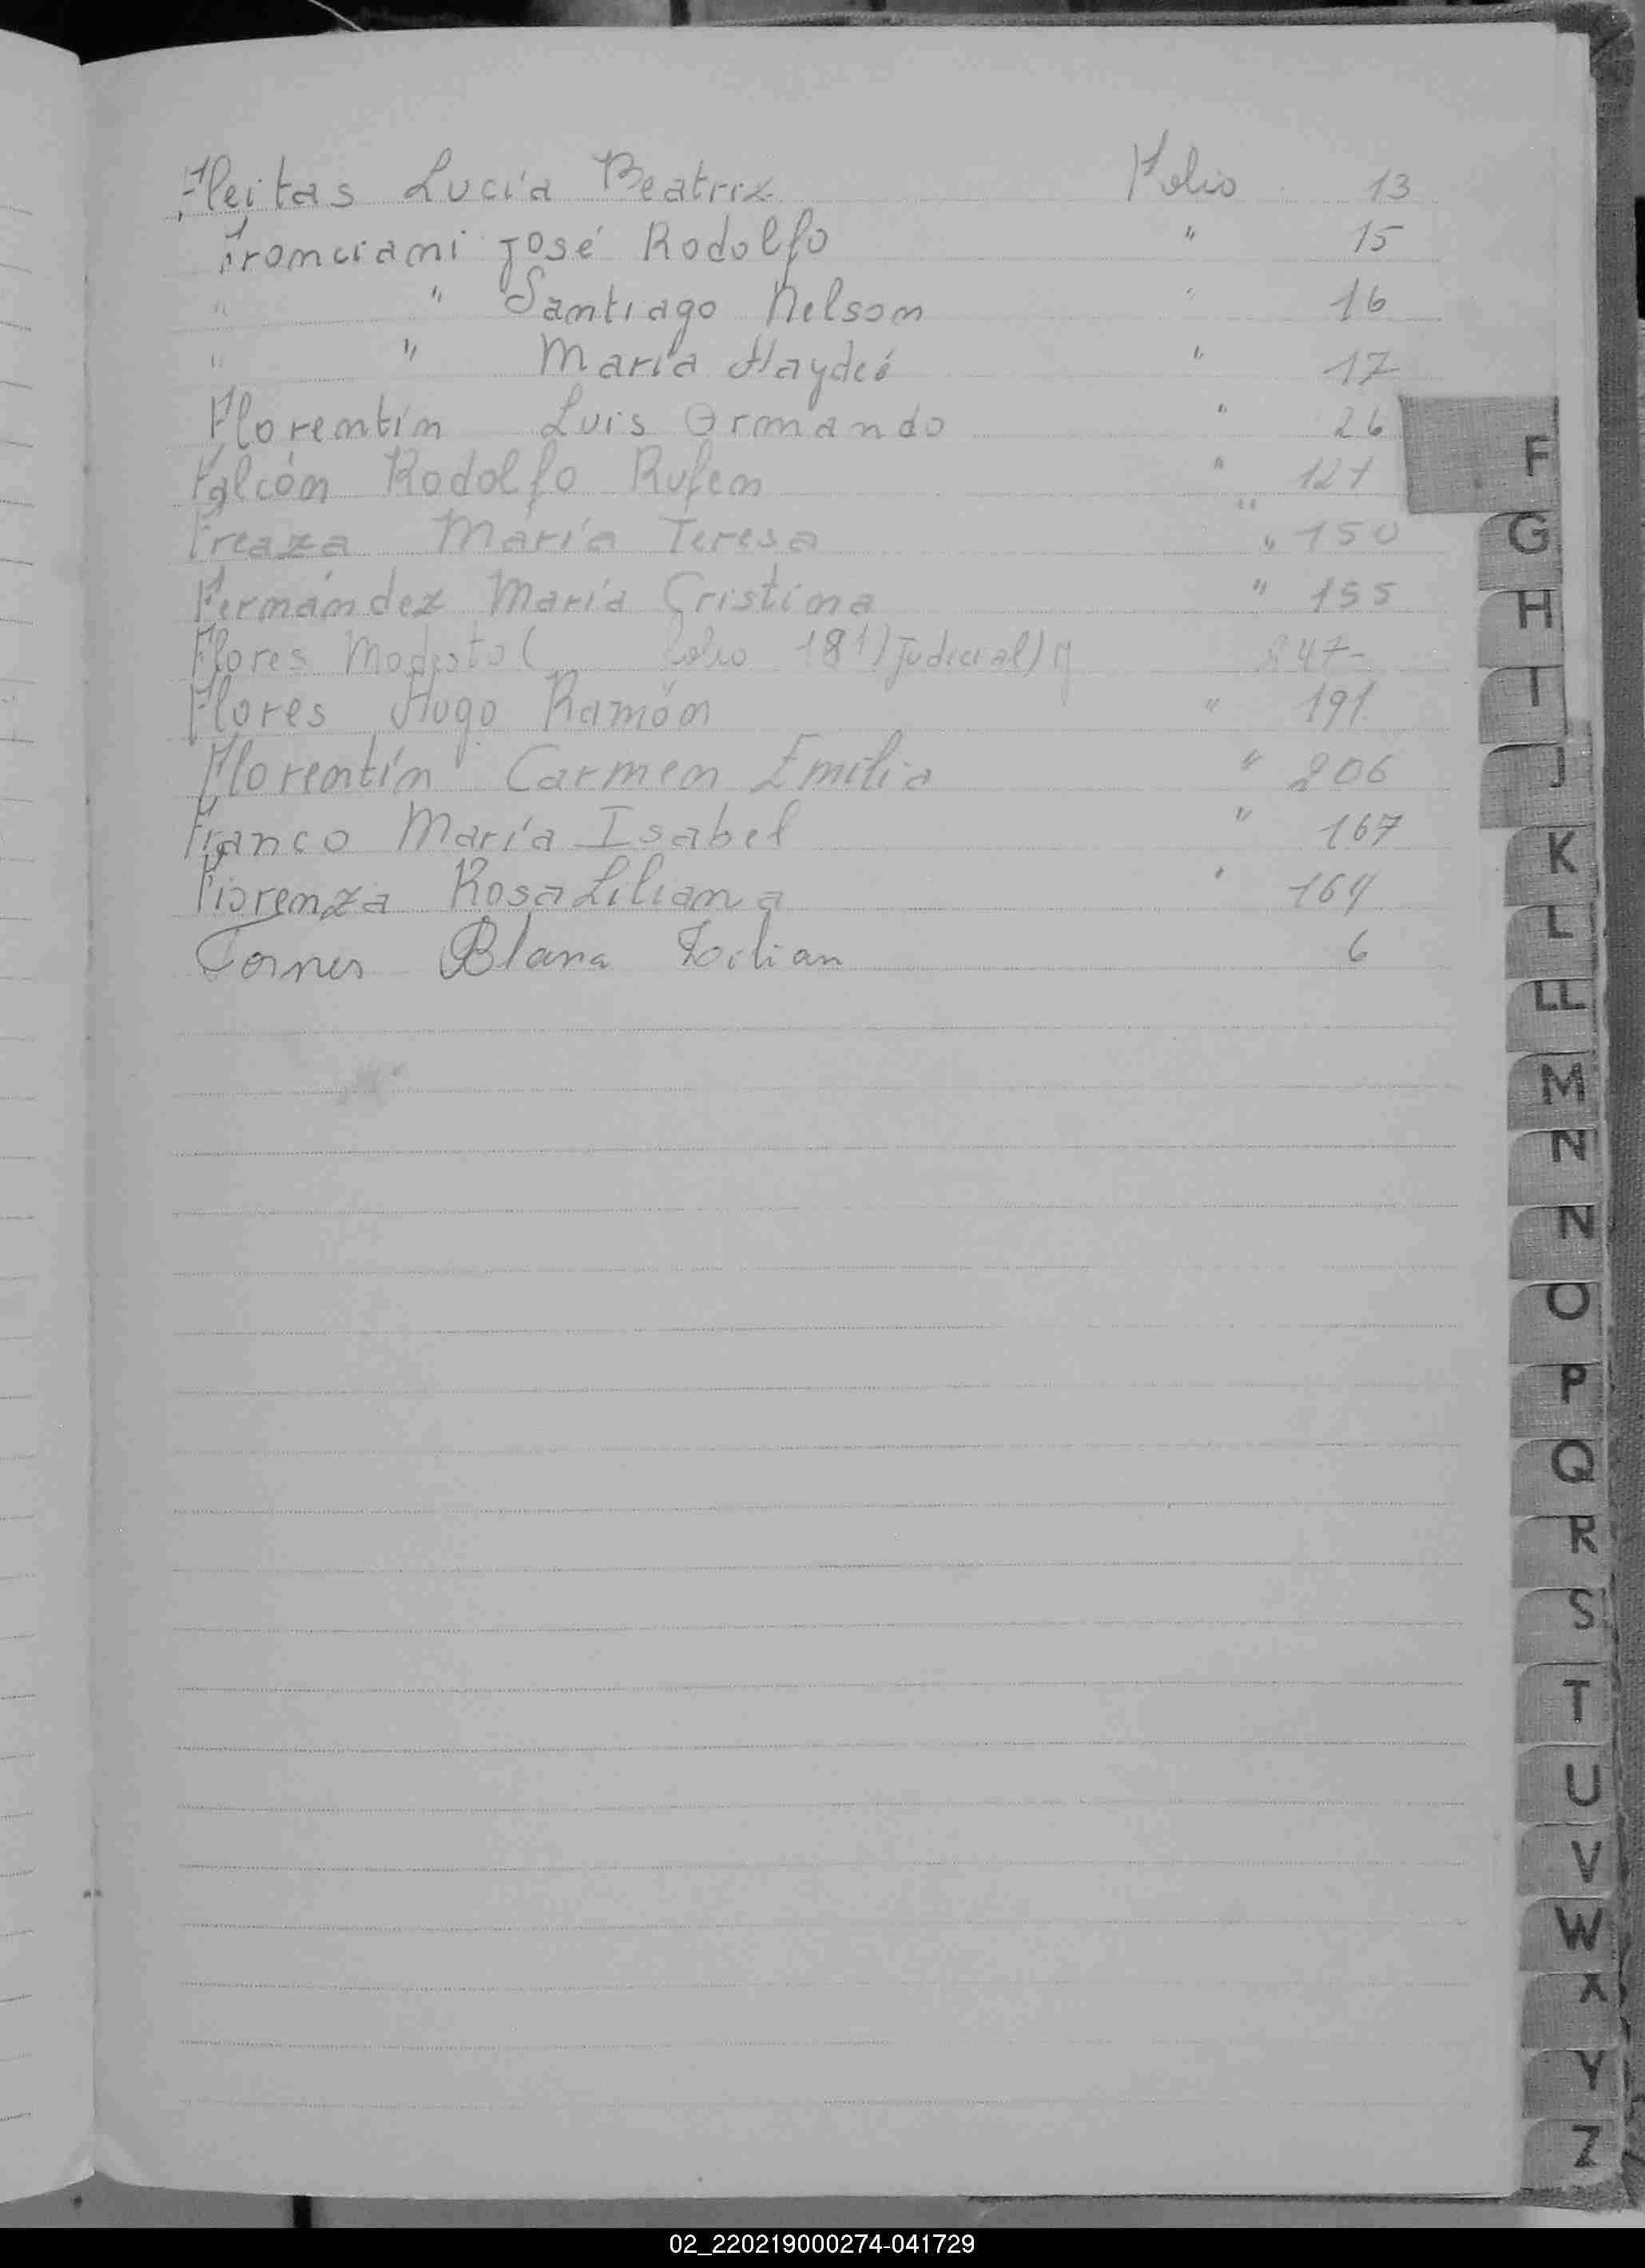 Fleitas Lucía Beatriz Folio 13
Franciani José Rodolfo " 15
" " Santiago Nelson " 16
" " María Haydeé " 17
Florentín Luis Ormando " 26
Falcón Rodolfo Rufem " 121
Freaza María Teresa " 150
Fernández María Cristina " 155
Flores Modesto ( folio 181) Judicial) 247-
Flores Hugo Ramón " 191
Florentín Carmen Emilia " 206
Franco María Isabel " 167
Fiorenza Rosa Liliana " 164
Fornes Blana Lilian 6
F
G
H
I
J
K
L
LL
M
N
N
O
P
Q
R
S
T
U
V
W
X
Y
Z
02_220219000274-041729